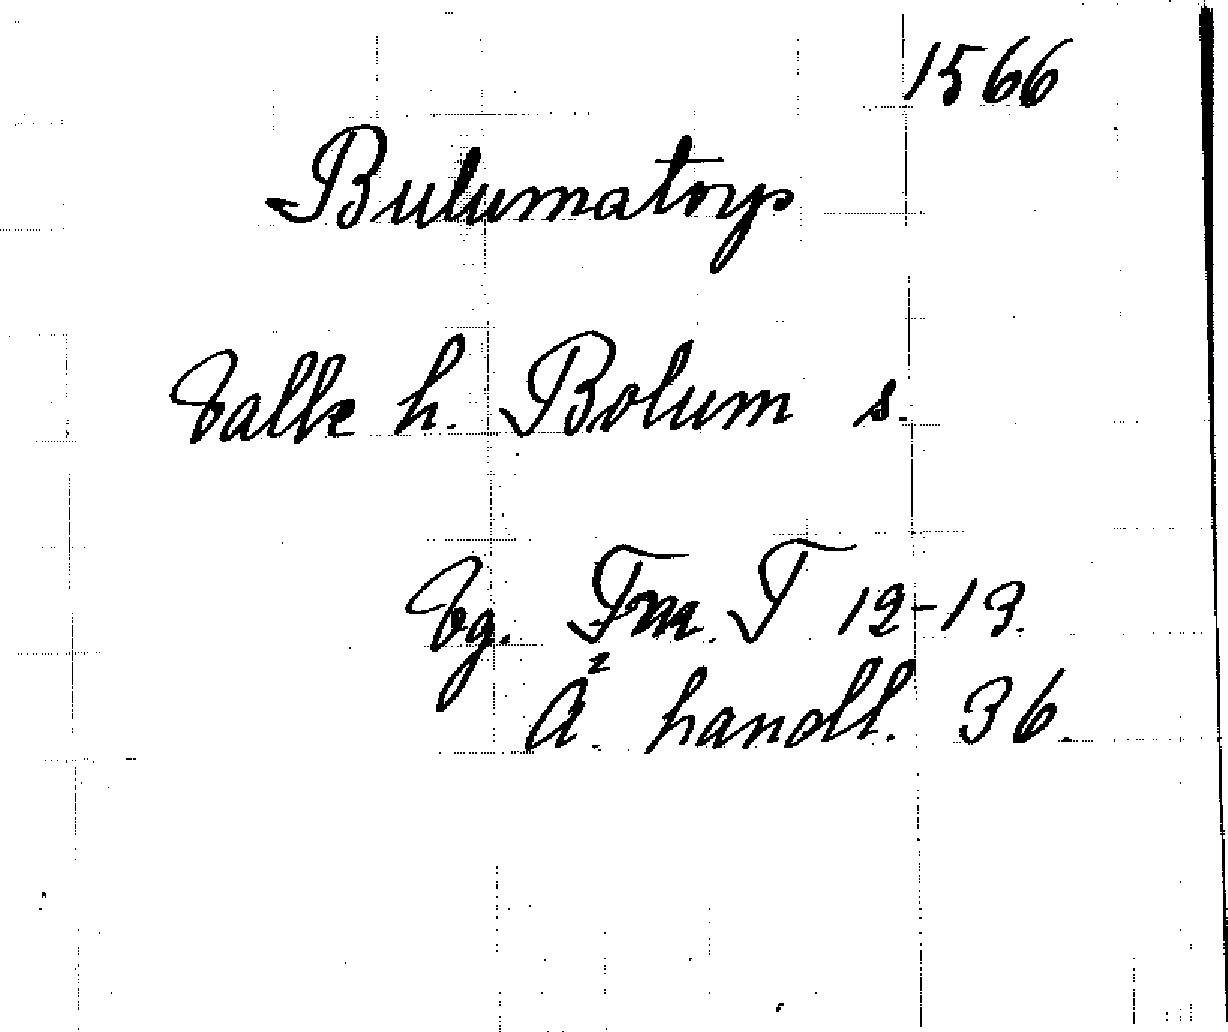 1566
Bulumatorp
Valke h. Bolum s.
Vg. Fm. T 12-13.
A². handl. 36.